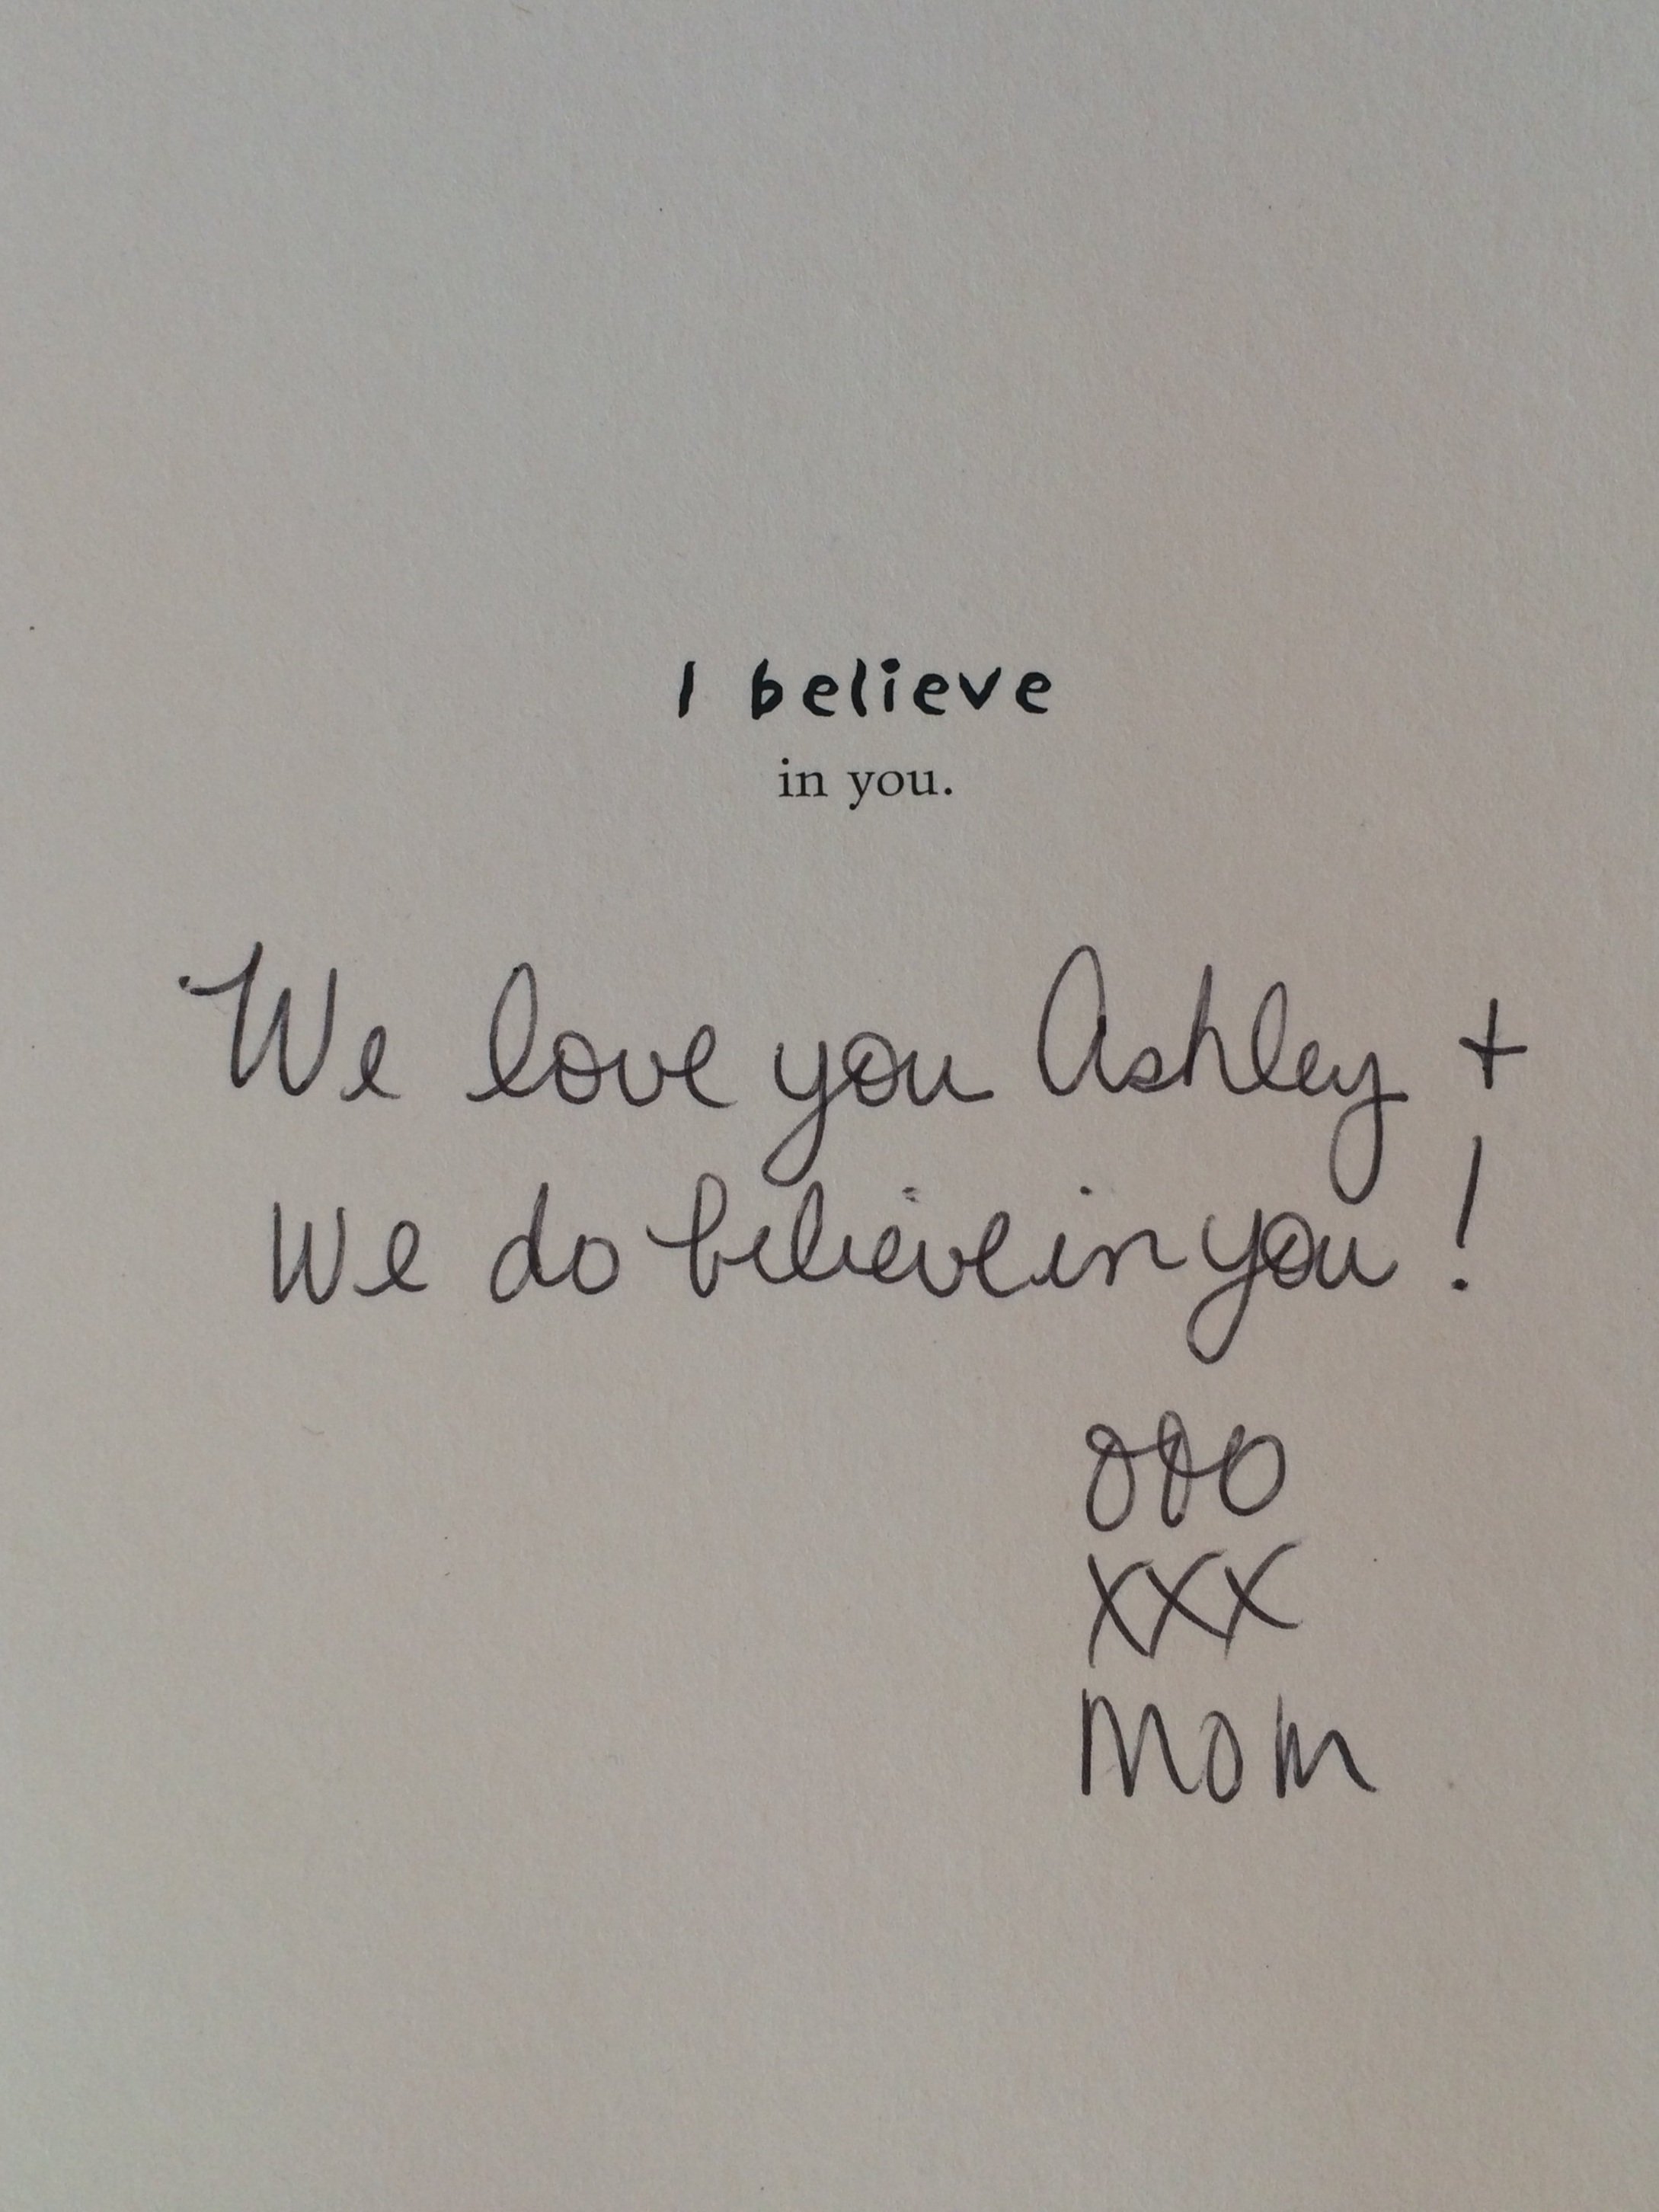 I believe
in you.
We love you Ashley +
We do believe in you!
ooo
xxx
Mom